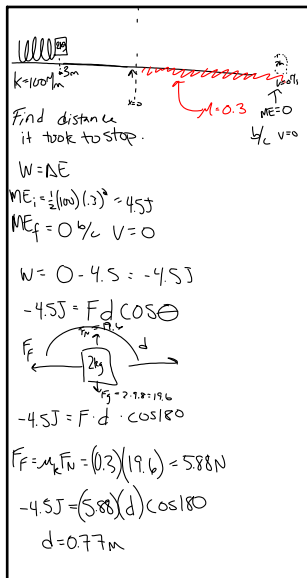 2kg
K=100N/m
.3m
x=0
μ=0.3
V=0m/s
ME=0
b/c V=0
Find distance
it took to stop.
W=ΔE
MEi=½(100)(.3)²=4.5J
MEf=0 b/c V=0
W=0-4.5=-4.5J
-4.5J=Fd cosΘ
FN=19.6
FF
d
2kg
Fg=2·9.8=19.6
-4.5J=F·d·cos180
FF=μkFN=(0.3)(19.6)=5.88N
-4.5J=(5.88)(d)cos180
d=0.77m